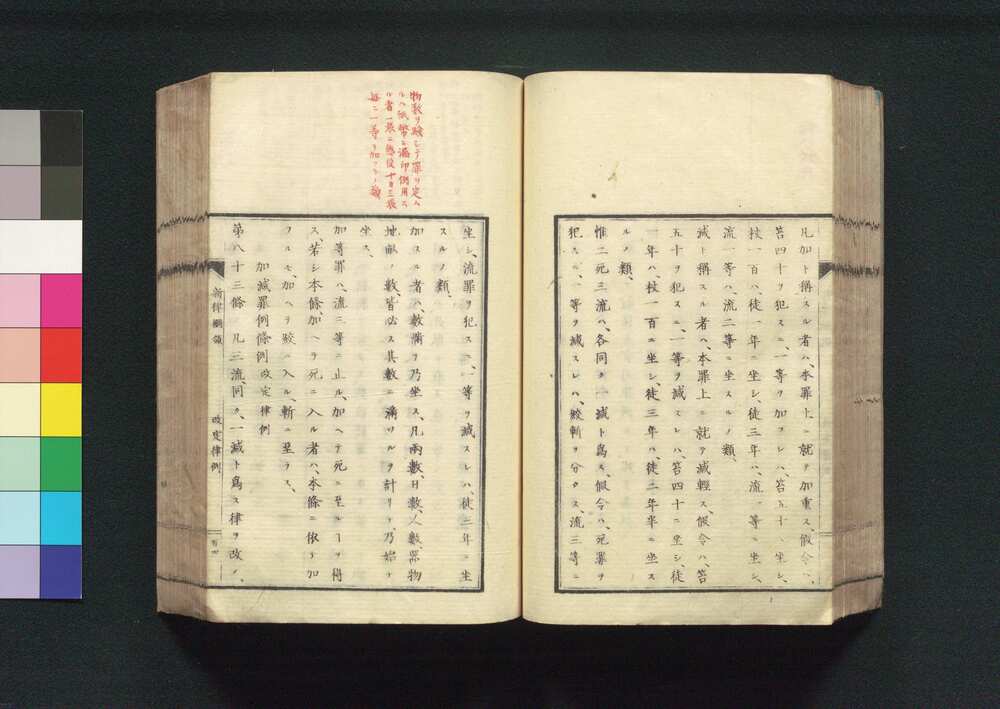 凡加ト稱スル者ハ、本罪上ニ就テ加重ス、假令ハ、
笞四十ヲ犯スニ、一等ヲ加フレハ、笞五十ニ坐シ、
杖一百ハ、徒一年ニ坐シ、徒三年ハ、流一等ニ坐シ、
流一等ハ、流二等ニ坐スルノ類、
減ト稱スル者ハ、本罪上ニ就テ減輕ス、假令ハ、笞
五十ヲ犯スニ、一等ヲ減スレハ、笞四十ニ坐シ、徒
一年ハ、杖一百ニ坐シ、徒三年ハ、徒二年半ニ坐ス
ルノ類、
惟二死三流ハ、各同ク一減ト爲ス、假令ハ、死罪ヲ
犯スニ、一等ヲ減スレハ、絞斬ヲ分タス、流三等ニ
物數ヲ験シテ罪ヲ定ム
ルハ紙幣ニ漏印倒用ス
ル者一張ニ懲役十日三張
每ニ一等ヲ加フルノ類
坐シ、流罪ヲ犯スニ、一等ヲ減スレハ、徒三年ニ坐
スルノ類、
加スル者ハ、數滿テ乃坐ス、凡兩數、日數、人數、器物
地畝ノ數、皆必ス其數ニ滿ツルヲ計リテ、乃始テ
坐ス、
加等罪ハ、流三等ニ止ル、加ヘテ死ニ至ルヿヲ得
ス、若シ本條、加ヘテ死ニ入ル者ハ、本條ニ依テ加
フルモ、加ヘテ絞ニ入ル、斬ニ至ラス、
加減罪例條例改定律例
第八十三條 凡三流、同ク、一減ト爲ス律ヲ改メ、
新律綱領
改定律例